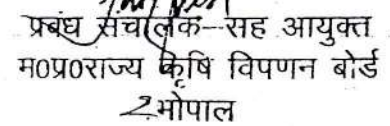 प्रबंध संचालक–सह आयुक्त
म0प्र0राज्य कृषि विपणन बोर्ड
भोपाल